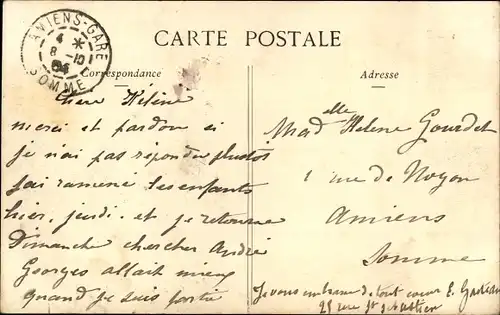 AMIENS-GARE
4 *
8 -10
04
SOMME
CARTE POSTALE
Correspondance
Adresse
Chère Hélène
merci et pardon si
je n'ai pas répondu plustôt
j'ai ramené les enfants
hier, jeudi, et je retourne
Dimanche chercher André
Georges allait mieux
quand je suis partie
Mad elle Helene Gourdet
1 rue de Noyon
Amiens
Somme
Je vous embrasse de tout coeur E.
25 rue St Sébastien